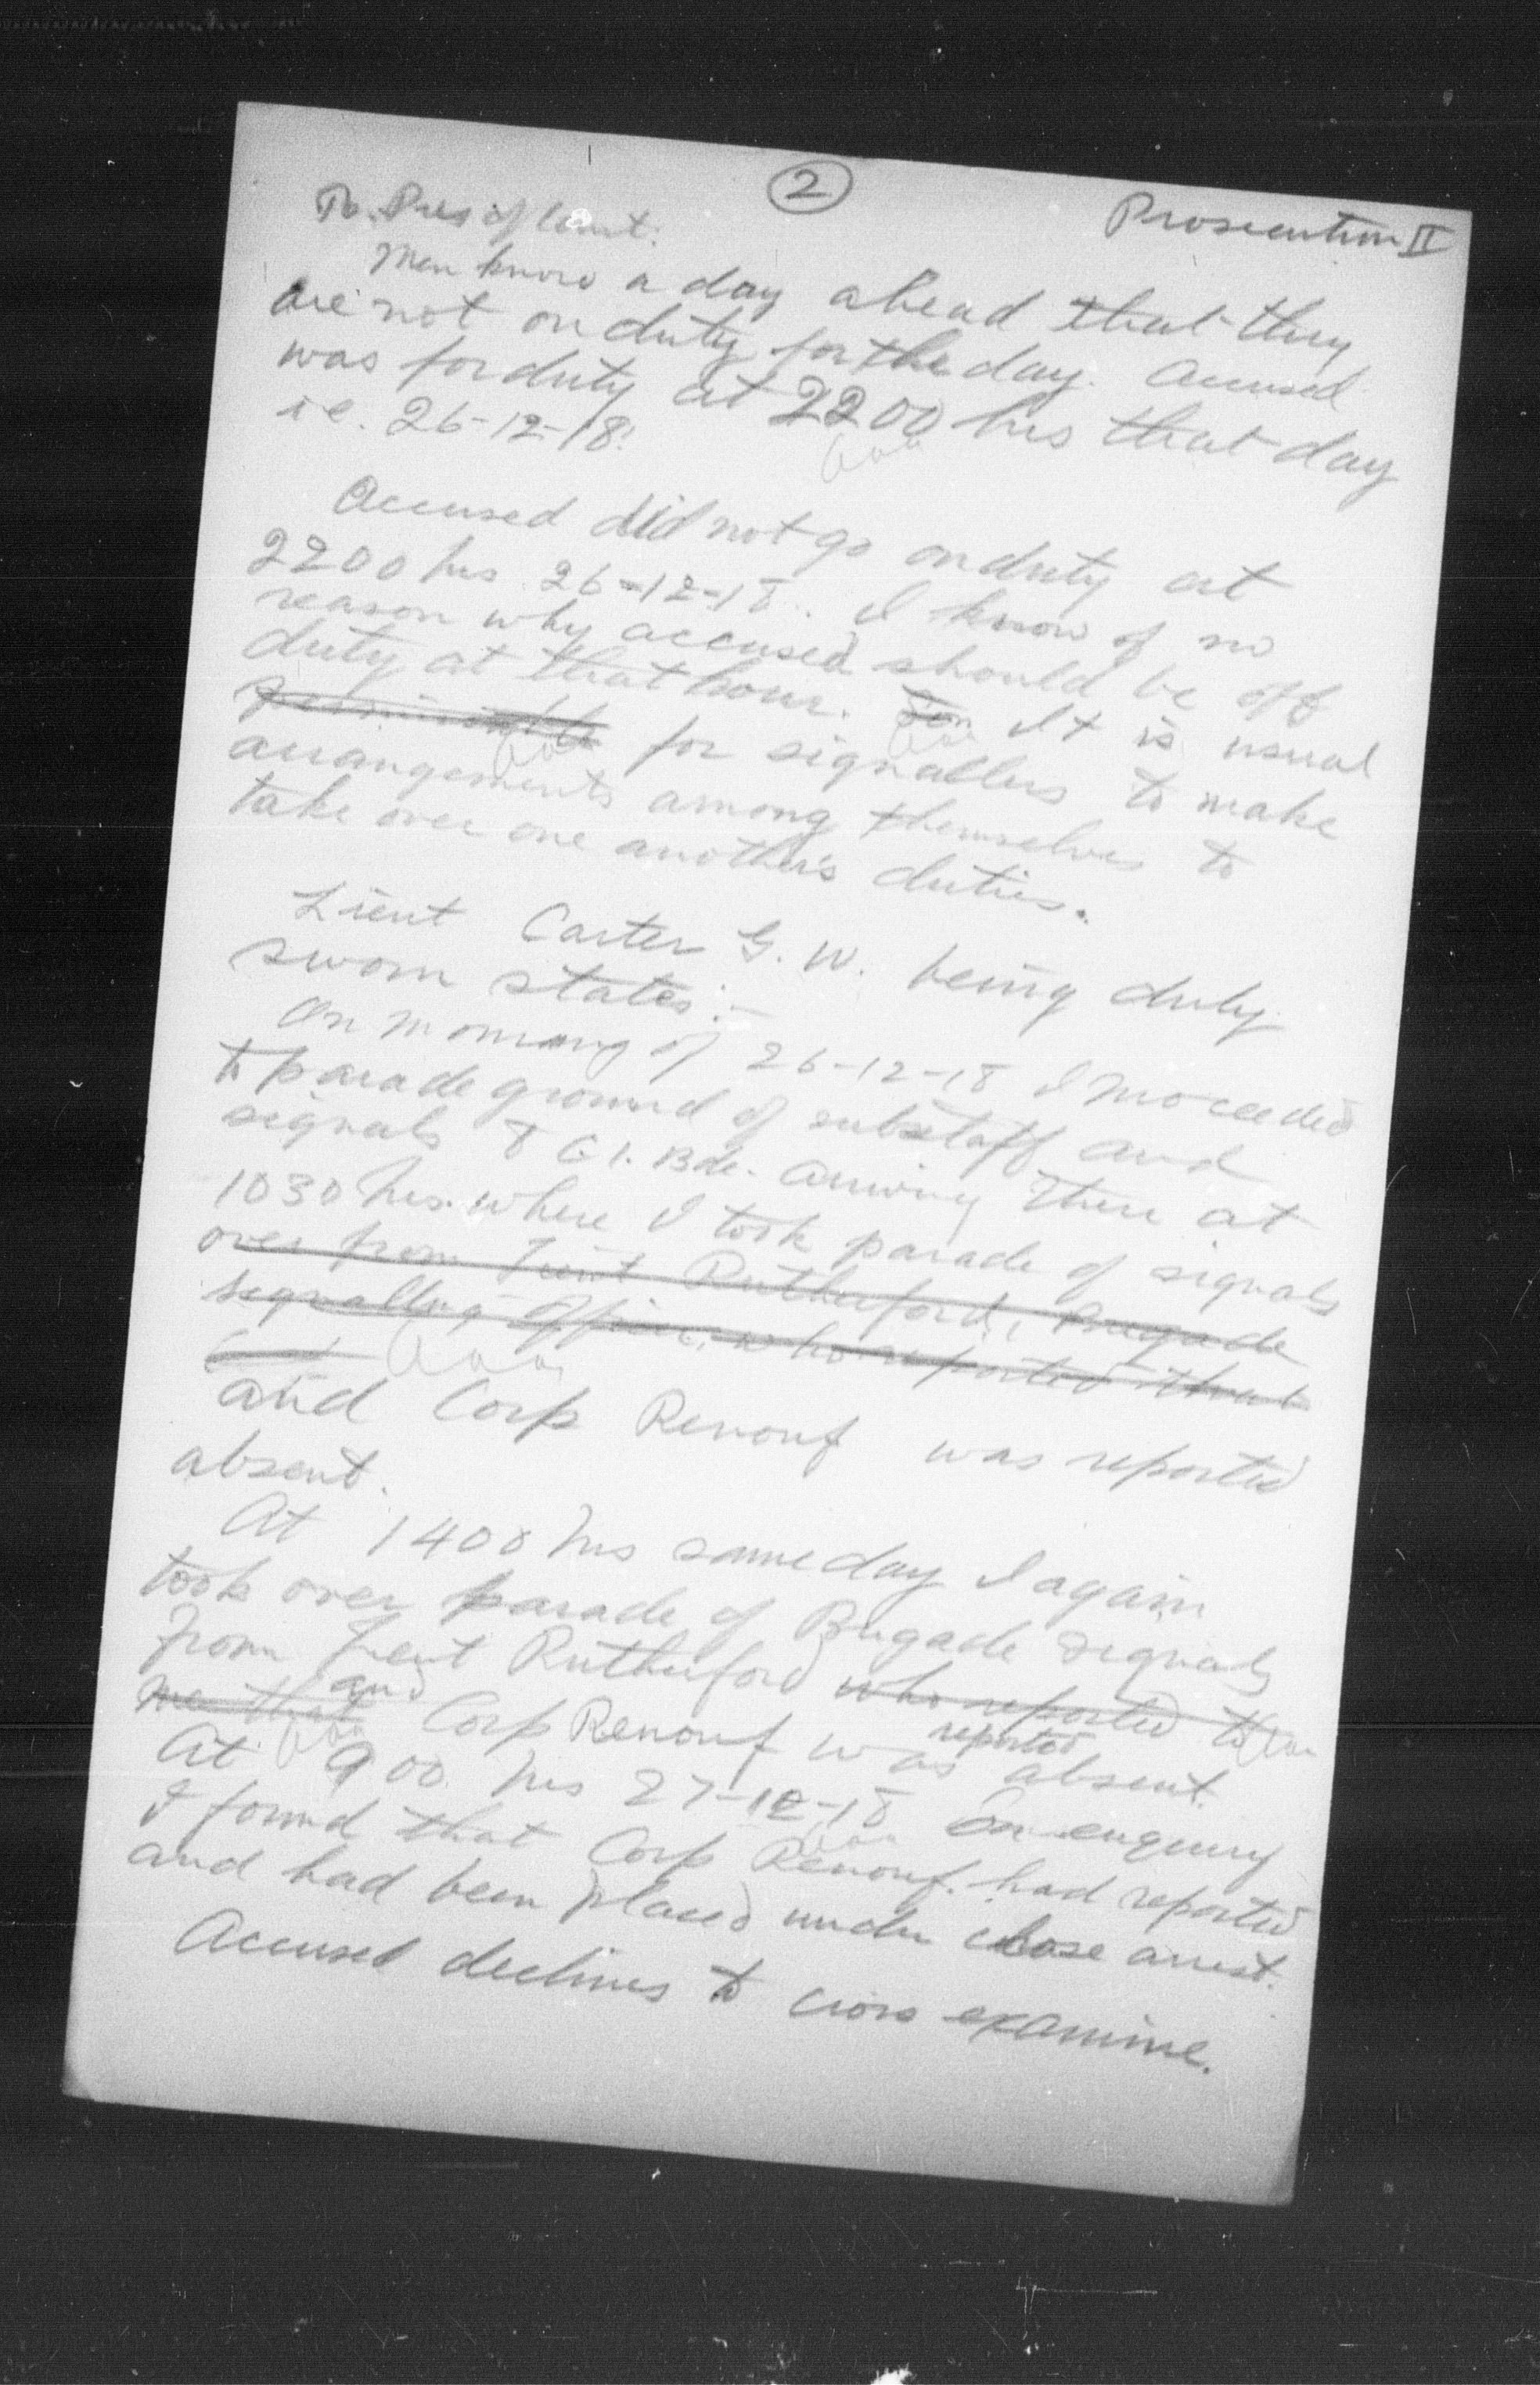 2
Prosecution II
To Pres of Court:
Men know a day ahead that they
are not on duty for the day. Accused
was for duty at 2200 hrs that day
ie. 26-12-18.
Accused did not go on duty at
2200 hrs 26-12-18. I know of no
reason why accused should be off
duty at that hour. It is usual
permissible for signallers to make
arrangements among themselves to
take over one another's duties.
Lieut Carter G. W. being duly
sworn states:-
On morning of 26-12-18 I proceeded
to parade ground of substaff and
signals 8 C.I. Bde. arriving there at
1030 hrs. where I took parade of signals
over from Lieut Rutherford, Brigade
signalling officer, who reported that
and Corp Renouf was reported
absent.
At 1400 hrs same day I again
took over parade of Brigade signals
from Lieut Rutherford who reported to
me that and Corp Renouf was reported absent.
At 900 hrs 27-12-18 On enquiry
I found that Corp Renouf. had reported
and had been placed under close arrest.
Accused declines to cross examine.